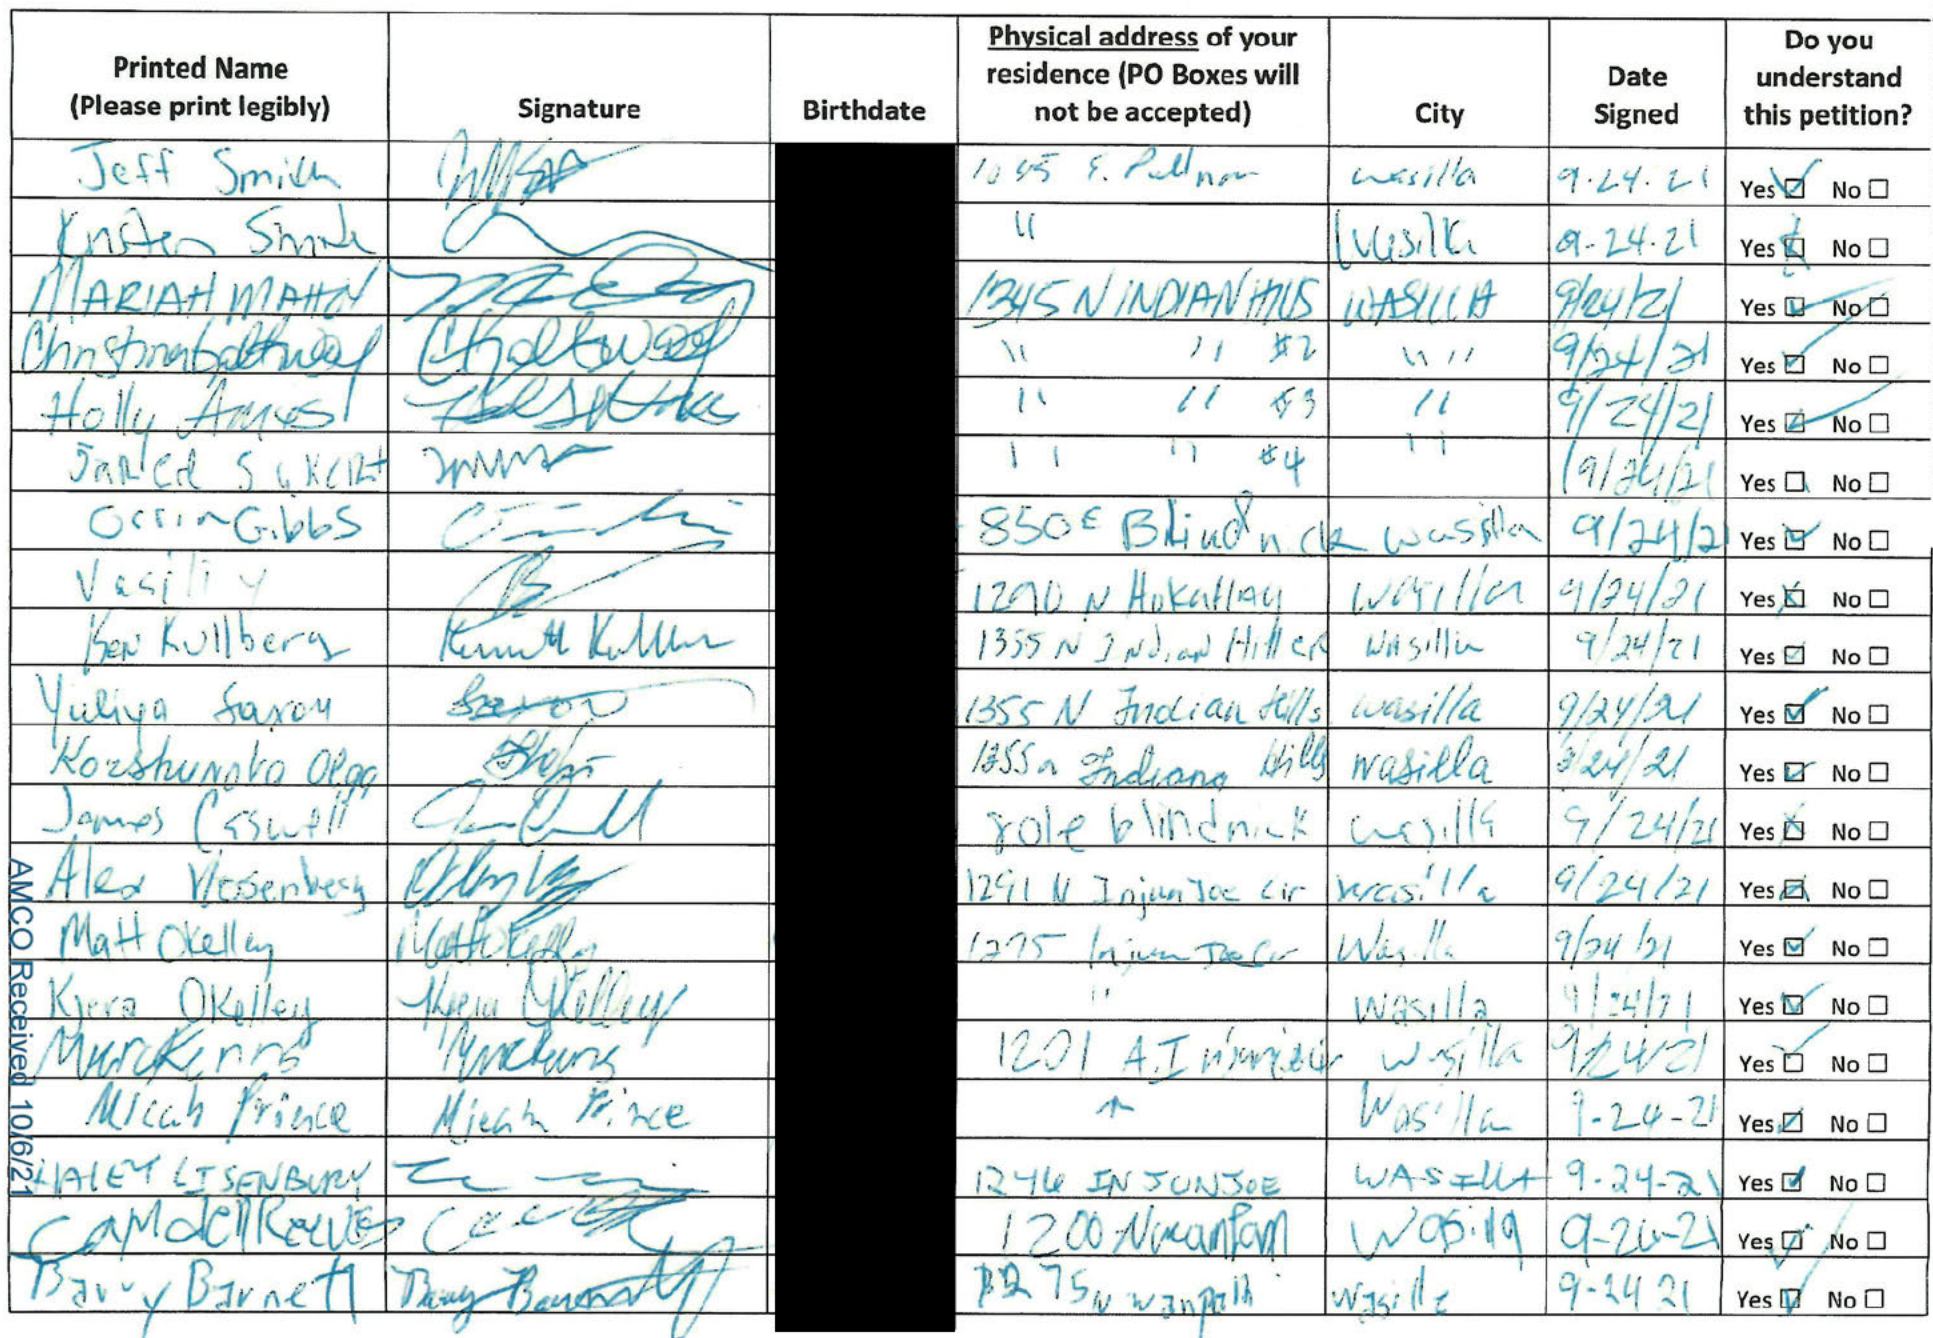 Printed Name
(Please print legibly)
Signature
Birthdate
Physical address of your
residence (PO Boxes will
not be accepted)
City
Date
Signed
Do you
understand
this petition?
Jeff Smith E. wasilla 9.24.21 Yes ☑ No ☐
Kristen Smith " Wasilla 9-24-21 Yes ☑ No ☐
MARIAH MAHN 1345 N INDIAN HILLS WASILLA 9/24/21 Yes ☑ No ☐
" " #2 " " 9/24/21 Yes ☑ No ☐
Holly " " #3 " 9/24/21 Yes ☑ No ☐
" " #4 " 9/24/21 Yes ☐ No ☐
Orrin Gibbs 850 E Blindnick wasilla 9/24/21 Yes ☑ No ☐
Vasiliy 1290 N Wasilla 9/24/21 Yes ☒ No ☐
Ken Kullberg 1355 N Indian Wasilla 9/24/21 Yes ☑ No ☐
Yuliya 1355 N Indian Hills wasilla 9/24/21 Yes ☑ No ☐
Olga Hills wasilla 24/21 Yes ☑ No ☐
James Caswell blindnick wasilla 9/24/21 Yes ☒ No ☐
Alex 1291 N Injun Joe Cir wasilla 9/24/21 Yes ☑ No ☐
Matt OKelley Matt OKelley 1275 Injun Joe Cir Wasilla 9/24/21 Yes ☑ No ☐
Kiera OKelley Kiera OKelley " Wasilla 9/24/21 Yes ☑ No ☐
1201 Wasilla 9/24/21 Yes ☑ No ☐
Micah Prince Micah Prince ↑ Wasilla 9-24-21 Yes ☑ No ☐
HALEY LISENBURY 1246 INJUNJOE WASILLA 9-24-21 Yes ☑ No ☐
Camdell Reeves 1200 Wasilla 9-24-21 Yes ☑ No ☐
Barry Barnett Barry Barnett wasilla 9-24 21 Yes ☑ No ☐
AMCO Received 10/6/21